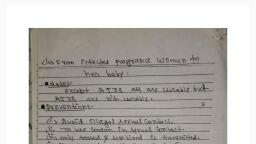 (iii) From infected pregnance woman to
her baby.
• Note:-
except AIDS all are curable but
AIDS are n't curable.
• Preventions:-
(i) Avoid illegal sexual contact.
(ii) To use condom in sexual contact.
(iii) only tested blood is transmitted.